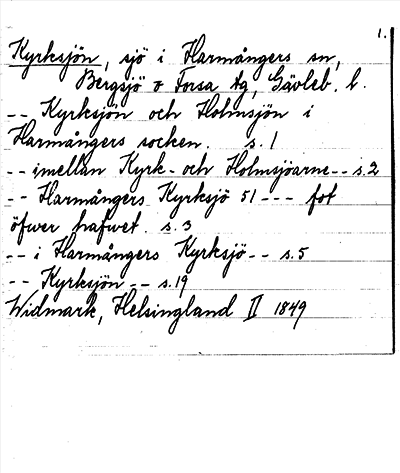 1.
Kyrksjön, sjö i Harmångers sn,
Bergsjö o Forsa tg, Gävleb. l.
-- Kyrksjön och Holmsjön i
Harmångers socken. s. 1
-- imellan Kyrk- och Holmsjöarne -- s. 2
-- Harmångers Kyrksjö 51 --- fot
öfwer hafwet. s. 3
-- i Harmångers Kyrksjö -- s. 5
-- Kyrksjön -- s. 19
Widmark, Helsingland II 1849